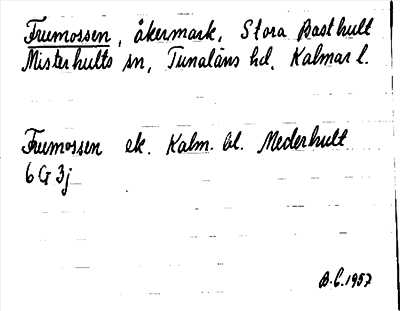 Frumossen, åkermark, Stora Basthult
Misterhults sn, Tunaläns hd, Kalmar l.
Frumossen ek. Kalm. bl. Mederhult
6 G 3j
B.L. 1957